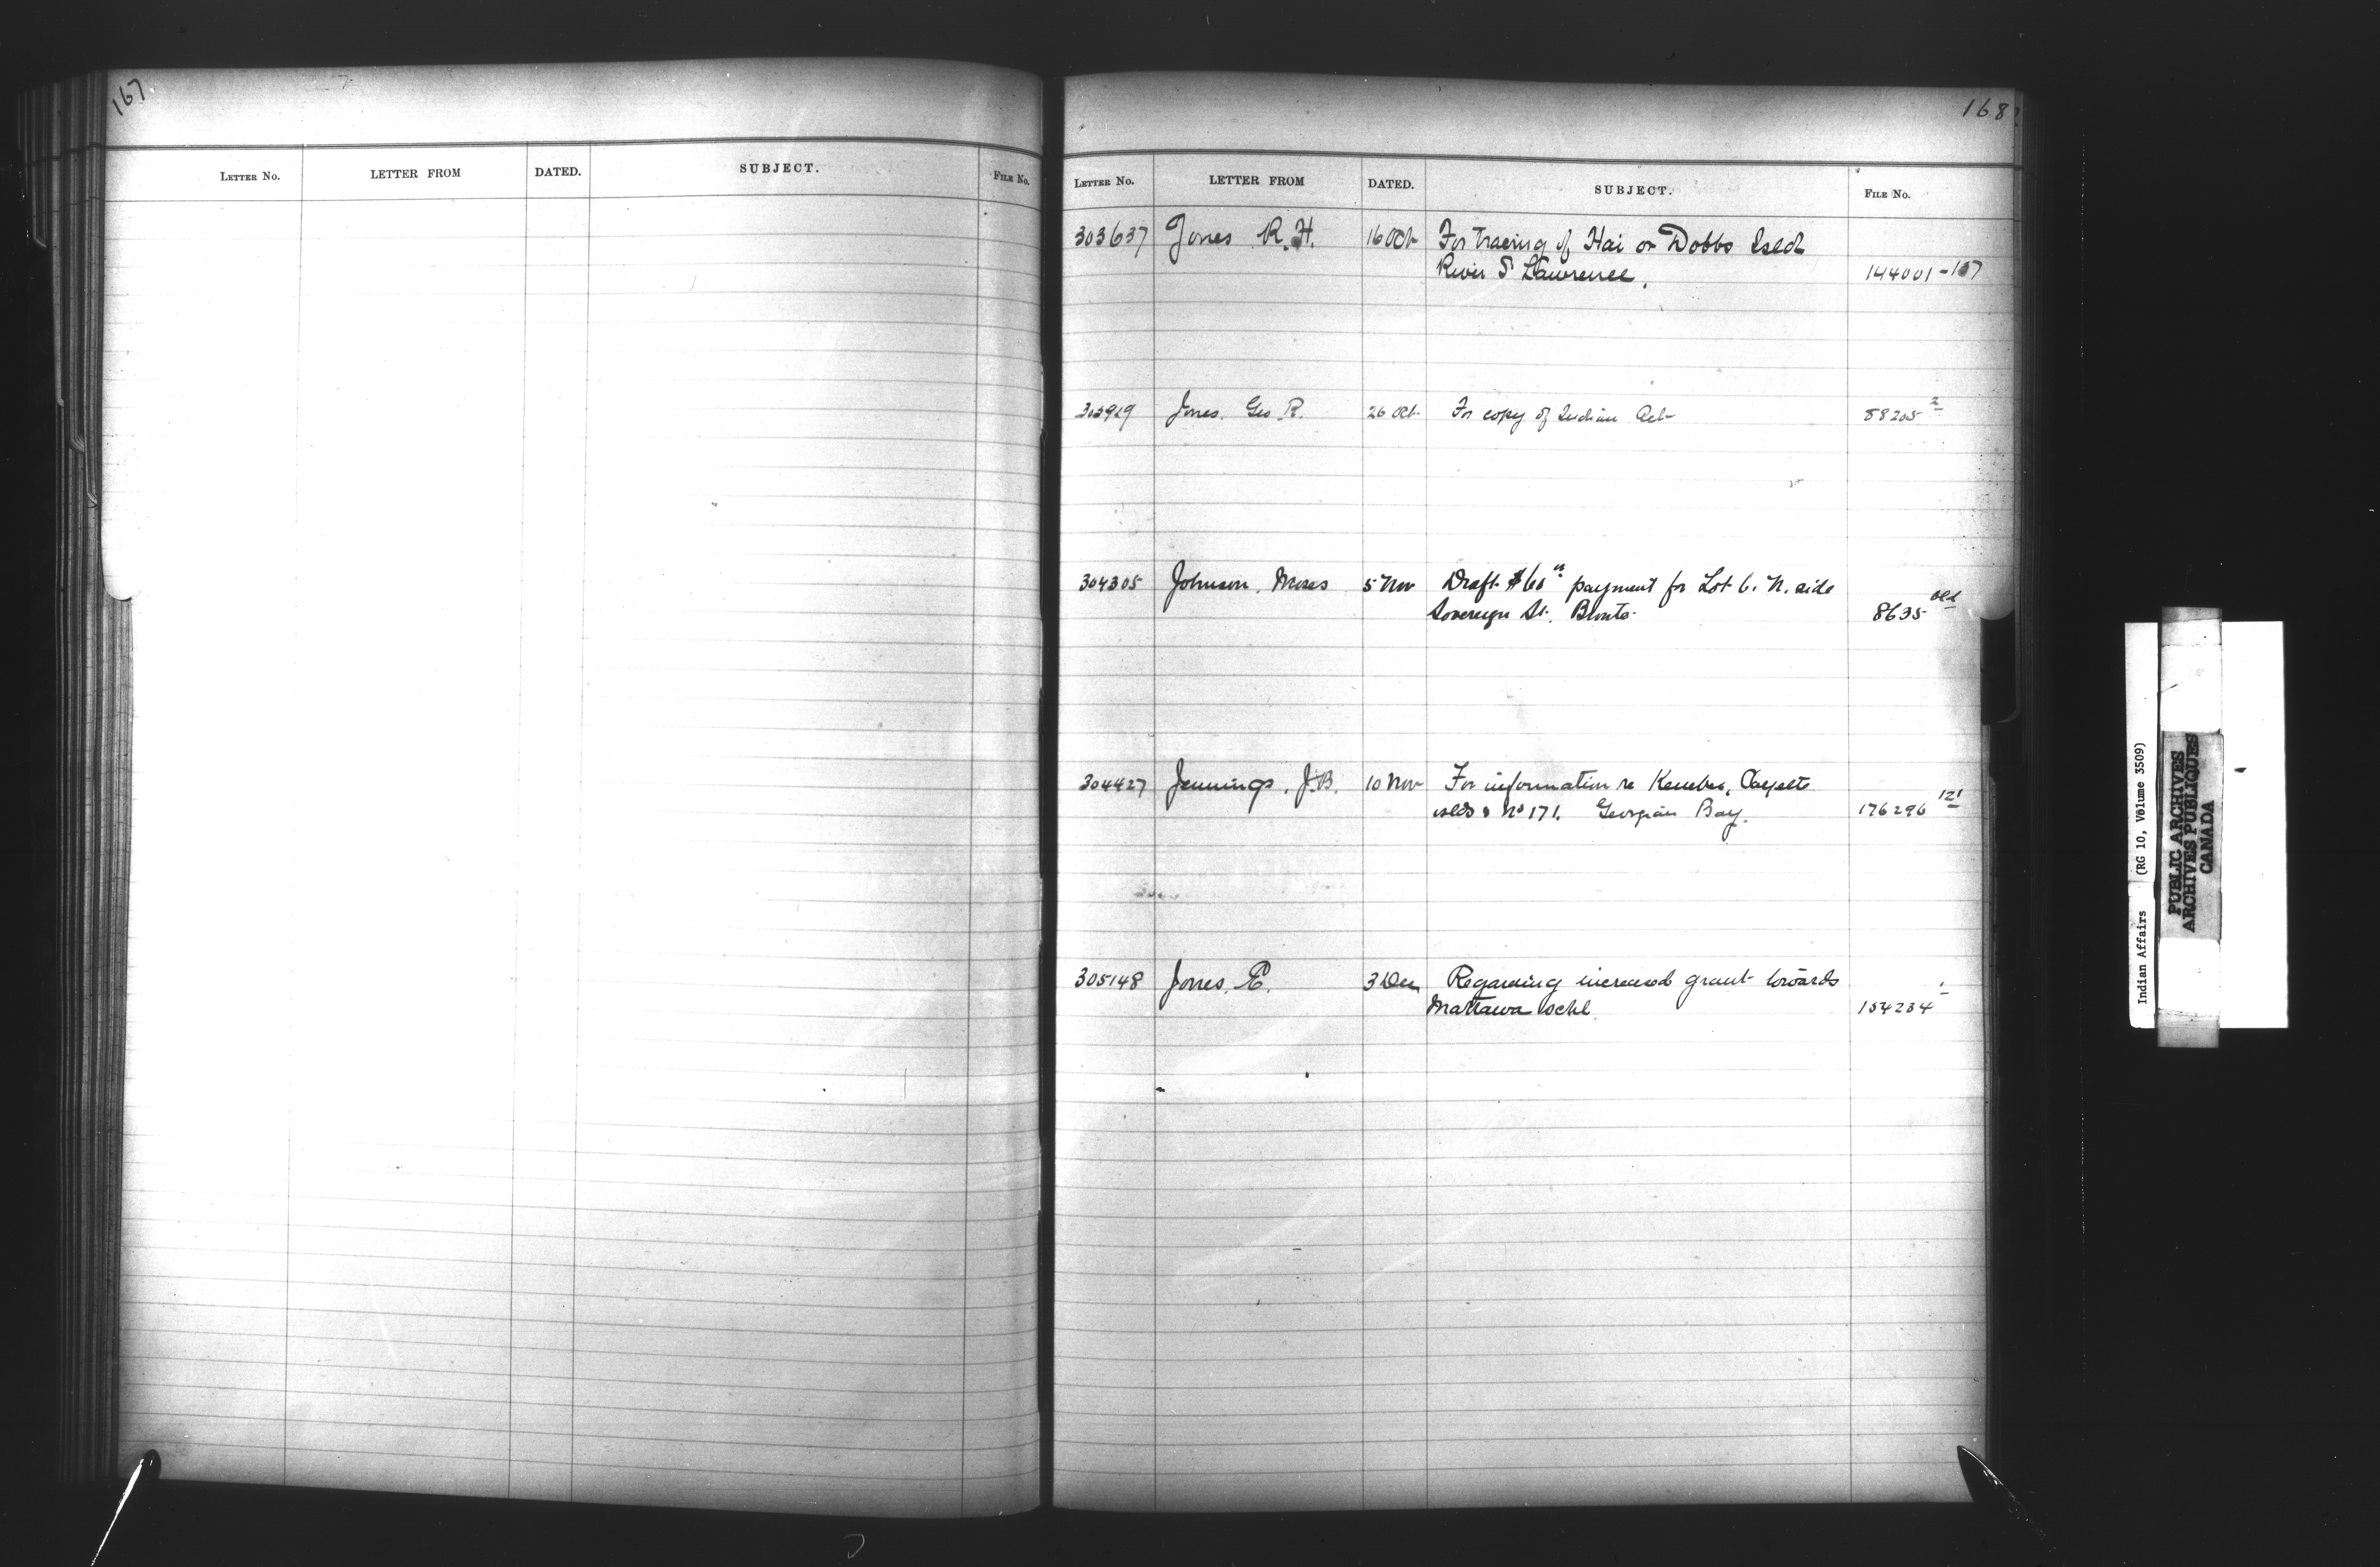 167
LETTER NO. LETTER FROM DATED. SUBJECT. FILE NO.
168
LETTER NO. LETTER FROM DATED. SUBJECT. FILE NO.
303637 Jones R. H. 16 Oct For tracing of Hai or Dobbs Isld
River S Lawrence. 144001-167
303919 Jones. Geo. R. 26 Oct For copy of Indian Act 88205 2
304305 Johnson. Moses 5 Nov Draft $60 payment for Lot 6. N. side
Sovereign St. Bronte. 8635 Old
304427 Jennings. J.B. 10 Nov For information re
islds & No 171. Georgian Bay. 176296 121
305148 Jones. E. 3 Dec Regarding increased grant towards
Mattawa schl. 154234 1
Indian Affairs (RG 10, Volume 3509)
PUBLIC ARCHIVES
ARCHIVES PUBLIQUES
CANADA